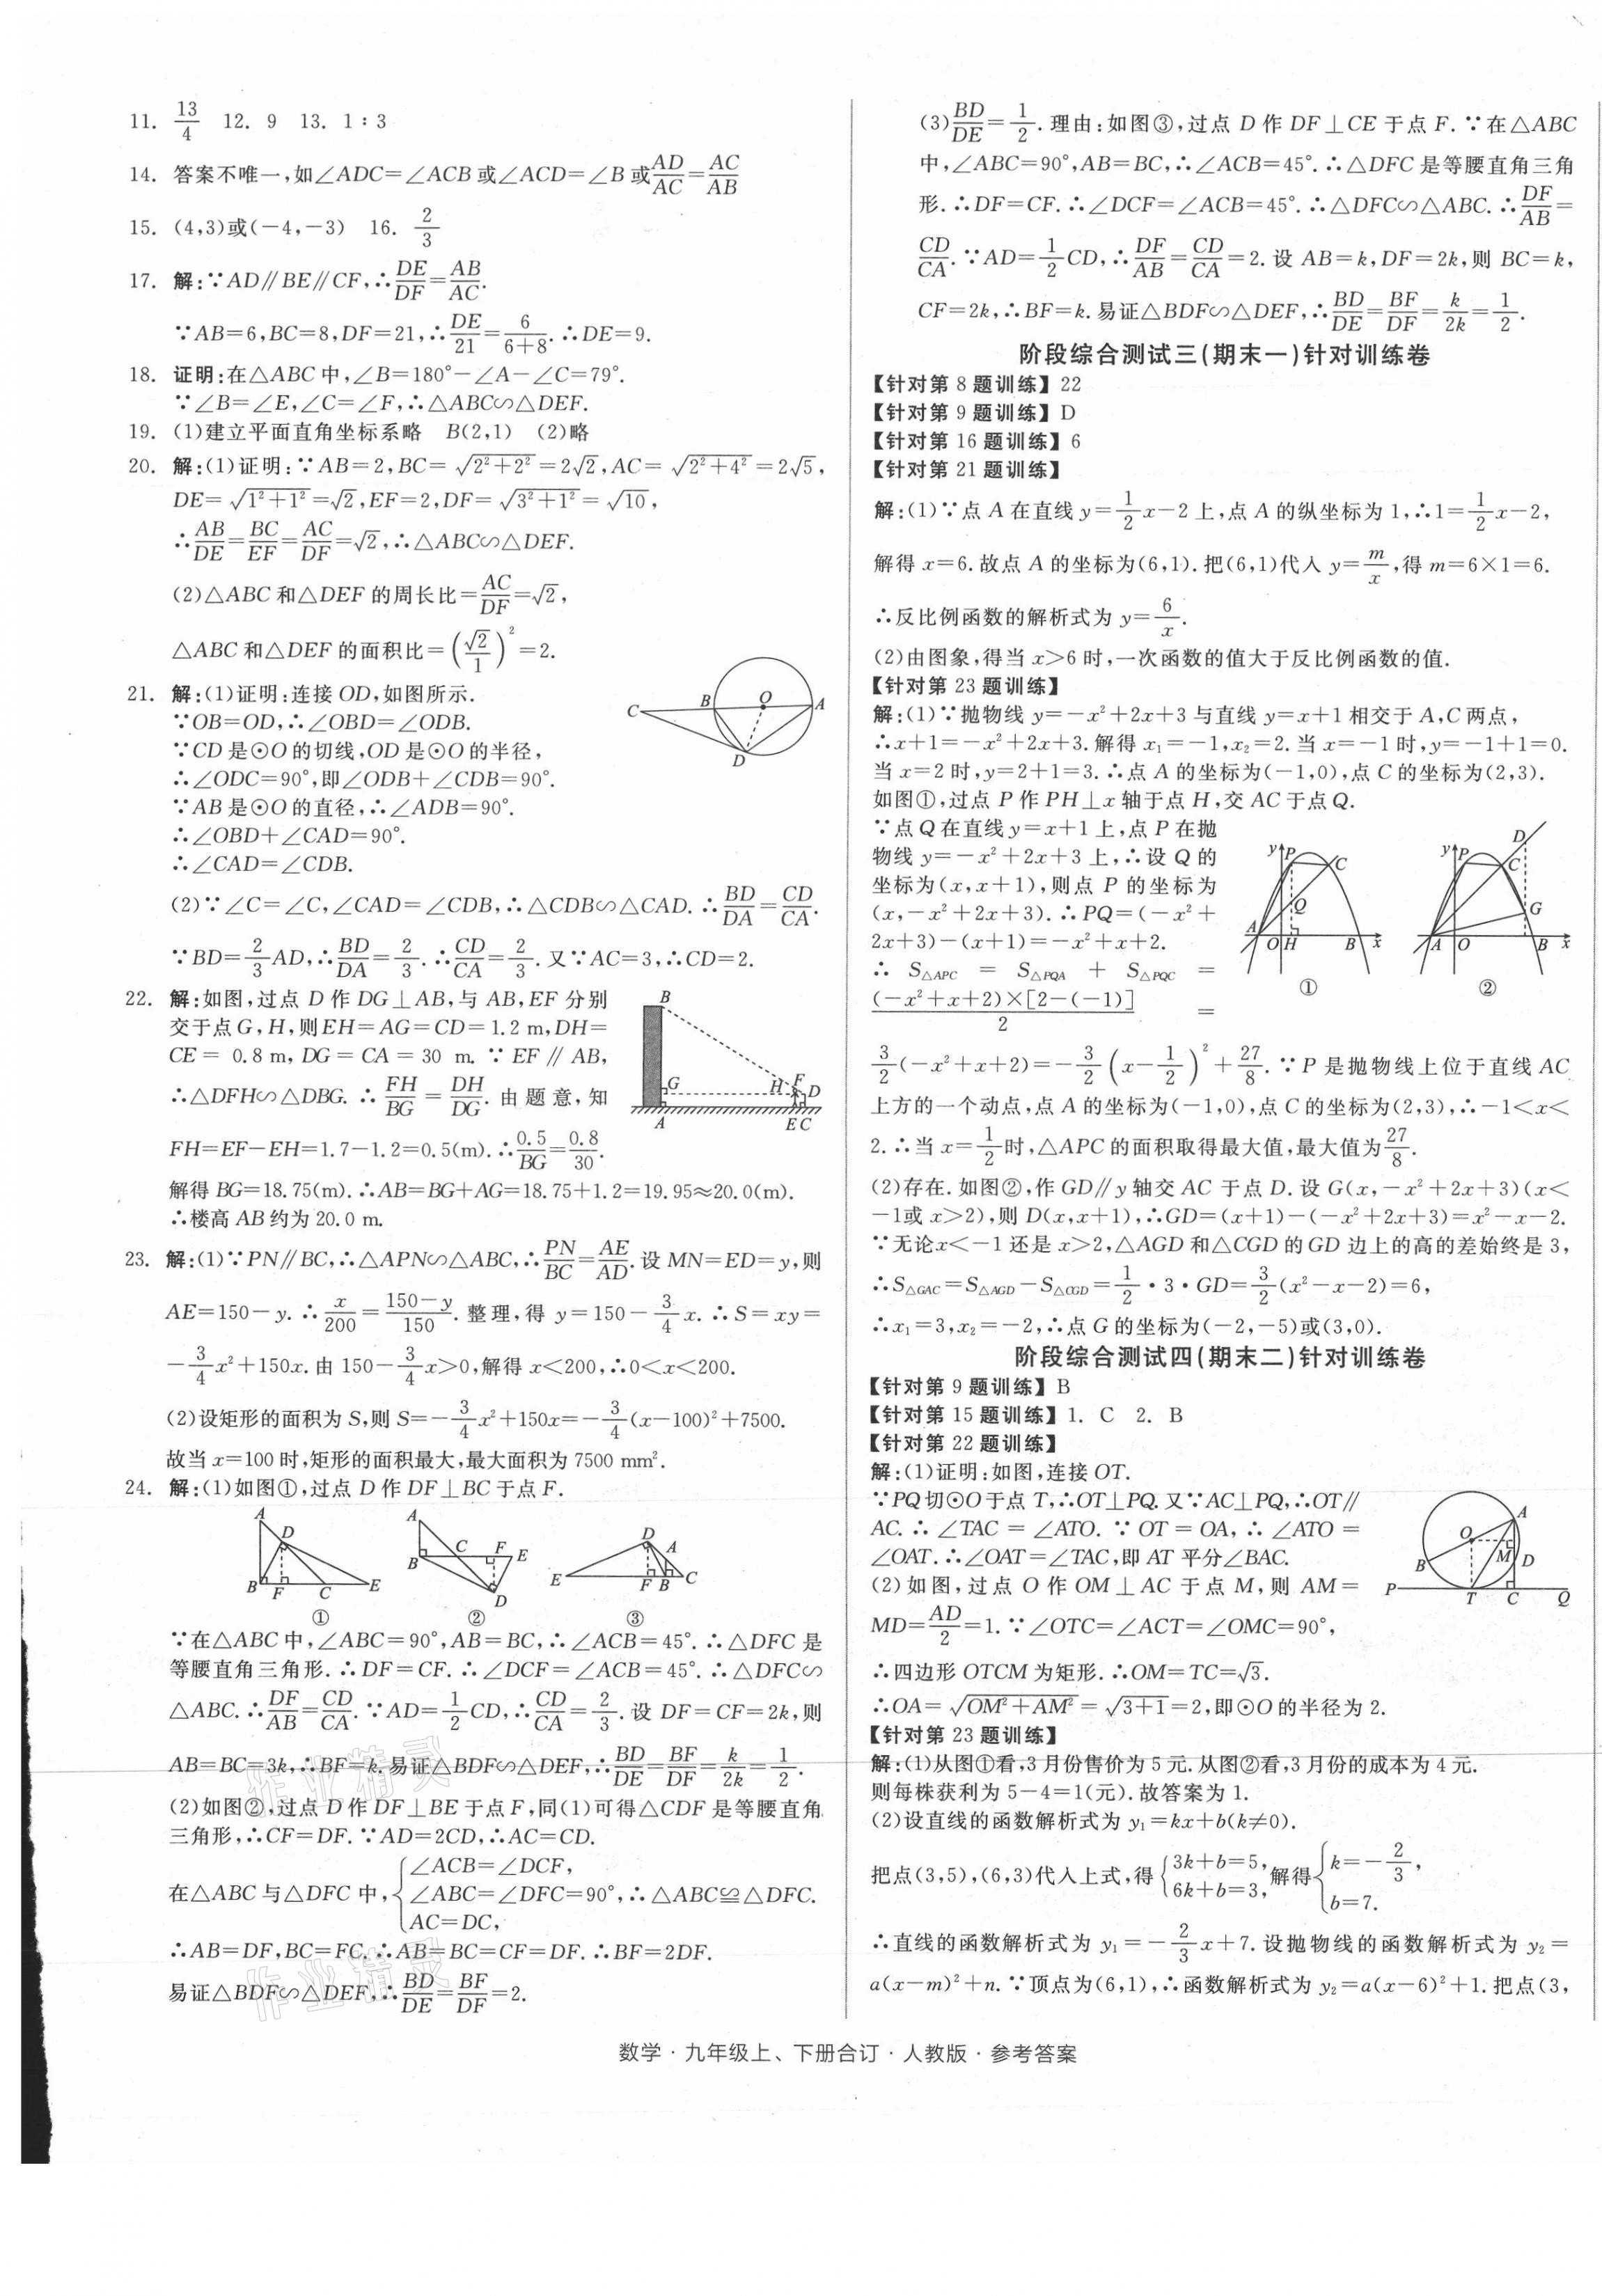 11. 13/4  12. 9  13. 1∶3
14. 答案不唯一,如∠ADC=∠ACB或∠ACD=∠B或AD/AC=AC/AB
15. (4,3)或(-4,-3)  16. 2/3
17. 解:∵AD∥BE∥CF,∴DE/DF=AB/AC.
∵AB=6,BC=8,DF=21,∴DE/21=6/(6+8).∴DE=9.
18. 证明:在△ABC中,∠B=180°-∠A-∠C=79°.
∵∠B=∠E,∠C=∠F,∴△ABC∽△DEF.
19. (1)建立平面直角坐标系略  B(2,1)  (2)略
20. 解:(1)证明:∵AB=2,BC=√(2²+2²)=2√2,AC=√(2²+4²)=2√5,
DE=√(1²+1²)=√2,EF=2,DF=√(3²+1²)=√10,
∴AB/DE=BC/EF=AC/DF=√2,∴△ABC∽△DEF.
(2)△ABC和△DEF的周长比=AC/DF=√2,
△ABC和△DEF的面积比=(√2/1)²=2.
21. 解:(1)证明:连接OD,如图所示.
∵OB=OD,∴∠OBD=∠ODB.
∵CD是⊙O的切线,OD是⊙O的半径,
∴∠ODC=90°,即∠ODB+∠CDB=90°.
∵AB是⊙O的直径,∴∠ADB=90°.
∴∠OBD+∠CAD=90°.
∴∠CAD=∠CDB.
C B O A D
(2)∵∠C=∠C,∠CAD=∠CDB,∴△CDB∽△CAD.∴BD/DA=CD/CA.
∵BD=2/3AD,∴BD/DA=2/3.∴CD/CA=2/3.又∵AC=3,∴CD=2.
22. 解:如图,过点D作DG⊥AB,与AB,EF分别
交于点G,H,则EH=AG=CD=1.2 m,DH=
CE=0.8 m,DG=CA=30 m.∵EF∥AB,
∴△DFH∽△DBG.∴FH/BG=DH/DG.由题意,知
FH=EF-EH=1.7-1.2=0.5(m).∴0.5/BG=0.8/30.
B G H F D A E C
解得BG=18.75(m).∴AB=BG+AG=18.75+1.2=19.95≈20.0(m).
∴楼高AB约为20.0 m.
23. 解:(1)∵PN∥BC,∴△APN∽△ABC,∴PN/BC=AE/AD.设MN=ED=y,则
AE=150-y.∴x/200=(150-y)/150.整理,得y=150-3/4x.∴S=xy=
-3/4x²+150x.由150-3/4x>0,解得x<200,∴0<x<200.
(2)设矩形的面积为S,则S=-3/4x²+150x=-3/4(x-100)²+7500.
故当x=100时,矩形的面积最大,最大面积为7500 mm².
24. 解:(1)如图①,过点D作DF⊥BC于点F.
A D B F C E
A C F E B D
D A E F B C
① ② ③
∵在△ABC中,∠ABC=90°,AB=BC,∴∠ACB=45°.∴△DFC是
等腰直角三角形.∴DF=CF.∴∠DCF=∠ACB=45°.∴△DFC∽
△ABC.∴DF/AB=CD/CA.∵AD=1/2CD,∴CD/CA=2/3.设DF=CF=2k,则
AB=BC=3k,∴BF=k.易证△BDF∽△DEF,∴BD/DE=BF/DF=k/2k=1/2.
(2)如图②,过点D作DF⊥BE于点F,同(1)可得△CDF是等腰直角
三角形,∴CF=DF.∵AD=2CD,∴AC=CD.
在△ABC与△DFC中,{∠ACB=∠DCF,
∠ABC=∠DFC=90°,∴△ABC≌△DFC.
AC=DC,
∴AB=DF,BC=FC.∴AB=BC=CF=DF.∴BF=2DF.
易证△BDF∽△DEF,∴BD/DE=BF/DF=2.
作业精灵
作业精灵
(3)BD/DE=1/2.理由:如图③,过点D作DF⊥CE于点F.∵在△ABC
中,∠ABC=90°,AB=BC,∴∠ACB=45°.∴△DFC是等腰直角三角
形.∴DF=CF.∴∠DCF=∠ACB=45°.∴△DFC∽△ABC.∴DF/AB=
CD/CA.∵AD=1/2CD,∴DF/AB=CD/CA=2.设AB=k,DF=2k,则BC=k,
CF=2k,∴BF=k.易证△BDF∽△DEF,∴BD/DE=BF/DF=k/2k=1/2.
阶段综合测试三(期末一)针对训练卷
【针对第8题训练】22
【针对第9题训练】D
【针对第16题训练】6
【针对第21题训练】
解:(1)∵点A在直线y=1/2x-2上,点A的纵坐标为1,∴1=1/2x-2,
解得x=6.故点A的坐标为(6,1).把(6,1)代入y=m/x,得m=6×1=6.
∴反比例函数的解析式为y=6/x.
(2)由图象,得当x>6时,一次函数的值大于反比例函数的值.
【针对第23题训练】
解:(1)∵抛物线y=-x²+2x+3与直线y=x+1相交于A,C两点,
∴x+1=-x²+2x+3.解得x₁=-1,x₂=2.当x=-1时,y=-1+1=0.
当x=2时,y=2+1=3.∴点A的坐标为(-1,0),点C的坐标为(2,3).
如图①,过点P作PH⊥x轴于点H,交AC于点Q.
∵点Q在直线y=x+1上,点P在抛
物线y=-x²+2x+3上,∴设Q的
坐标为(x,x+1),则点P的坐标为
(x,-x²+2x+3).∴PQ=(-x²+
2x+3)-(x+1)=-x²+x+2.
∴S△APC=S△PQA+S△PQC=
(-x²+x+2)×[2-(-1)]/2=
y P C Q A O H B x ①
y P D C G A O B x ②
3/2(-x²+x+2)=-3/2(x-1/2)²+27/8.∵P是抛物线上位于直线AC
上方的一个动点,点A的坐标为(-1,0),点C的坐标为(2,3),∴-1<x<
2.∴当x=1/2时,△APC的面积取得最大值,最大值为27/8.
(2)存在.如图②,作GD∥y轴交AC于点D.设G(x,-x²+2x+3)(x<
-1或x>2),则D(x,x+1),∴GD=(x+1)-(-x²+2x+3)=x²-x-2.
∵无论x<-1还是x>2,△AGD和△CGD的GD边上的高的差始终是3,
∴S△GAC=S△AGD-S△CGD=1/2·3·GD=3/2(x²-x-2)=6,
∴x₁=3,x₂=-2,∴点G的坐标为(-2,-5)或(3,0).
阶段综合测试四(期末二)针对训练卷
【针对第9题训练】B
【针对第15题训练】1. C  2. B
【针对第22题训练】
解:(1)证明:如图,连接OT.
∵PQ切⊙O于点T,∴OT⊥PQ.又∵AC⊥PQ,∴OT∥
AC.∴∠TAC=∠ATO.∵OT=OA,∴∠ATO=
∠OAT.∴∠OAT=∠TAC,即AT平分∠BAC.
(2)如图,过点O作OM⊥AC于点M,则AM=
MD=AD/2=1.∵∠OTC=∠ACT=∠OMC=90°,
A O M D B P T C Q
∴四边形OTCM为矩形.∴OM=TC=√3.
∴OA=√(OM²+AM²)=√(3+1)=2,即⊙O的半径为2.
【针对第23题训练】
解:(1)从图①看,3月份售价为5元.从图②看,3月份的成本为4元.
则每株获利为5-4=1(元).故答案为1.
(2)设直线的函数解析式为y₁=kx+b(k≠0).
把点(3,5),(6,3)代入上式,得{3k+b=5, 6k+b=3,解得{k=-2/3, b=7.
∴直线的函数解析式为y₁=-2/3x+7.设抛物线的函数解析式为y₂=
a(x-m)²+n.∵顶点为(6,1),∴函数解析式为y₂=a(x-6)²+1.把点(3,
数学·九年级上、下册合订·人教版·参考答案